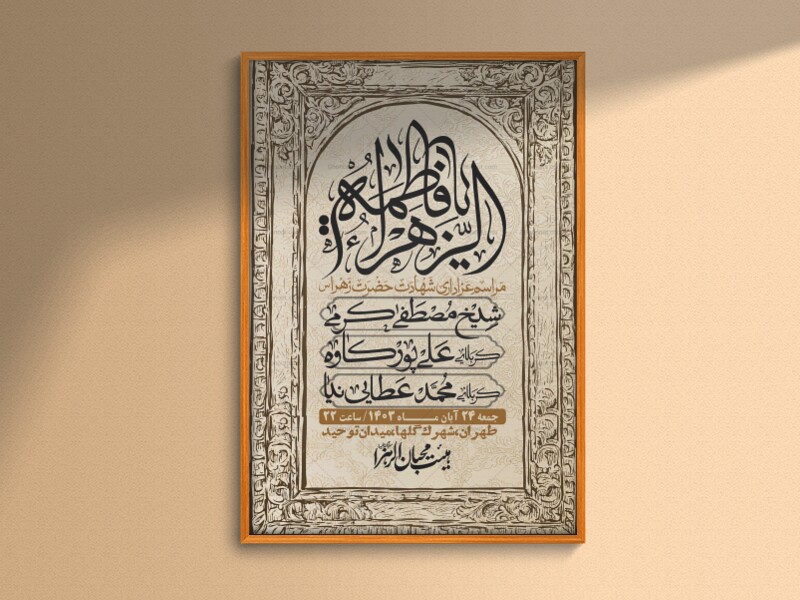 یا فاطمة الزهراء
مراسم عزاداری شهادت حضرت زهرا س
شیخ مصطفی کرمی
کربلایی علی پورکاوه
کربلایی محمد عطایی نیا
جمعه ۲۴ آبان مـــاه ۱۴۰۳ / ساعت ۲۲
طهران،شهرک گلها،میدان توحید
هیئت محبان الزهرا